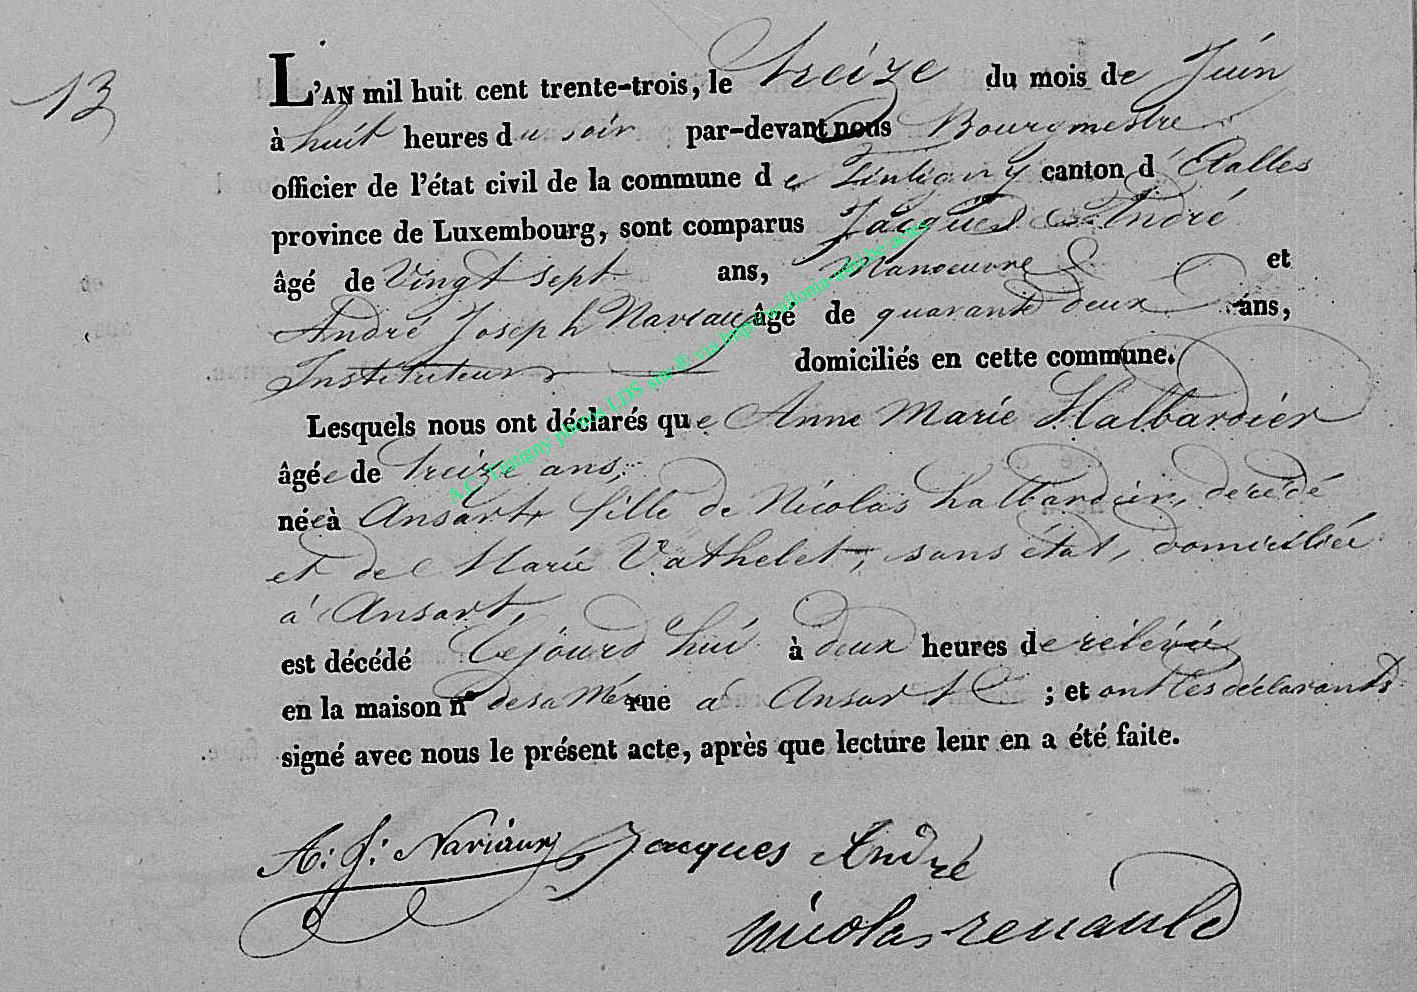 13
L'AN mil huit cent trente-trois, le treize du mois de Juin
à huit heures du soir par-devant nous Bourgmestre
officier de l'état civil de la commune de Tintigny canton d'Etalles
province de Luxembourg, sont comparus Jacques André
âgé de Vingt sept ans, Manoeuvre et
André Joseph Naviaux âgé de quarante deux ans,
Instituteur domiciliés en cette commune.
Lesquels nous ont déclarés que Anne Marie Halbardier
âgée de treize ans,
née à Ansart, fille de Nicolas halbardier, décédé
et de Marie Vathelet, sans état, domiciliée
à Ansart,
est décédé Cejourd'hui à deux heures de rélévée
en la maison n° de sa Mère rue à Ansart ; et ont les déclarants
signé avec nous le présent acte, après que lecture leur en a été faite.
A: J: Naviaux Jacques André
Nicolas renauld
A.C. Tintigny photos LDS site ® via http://